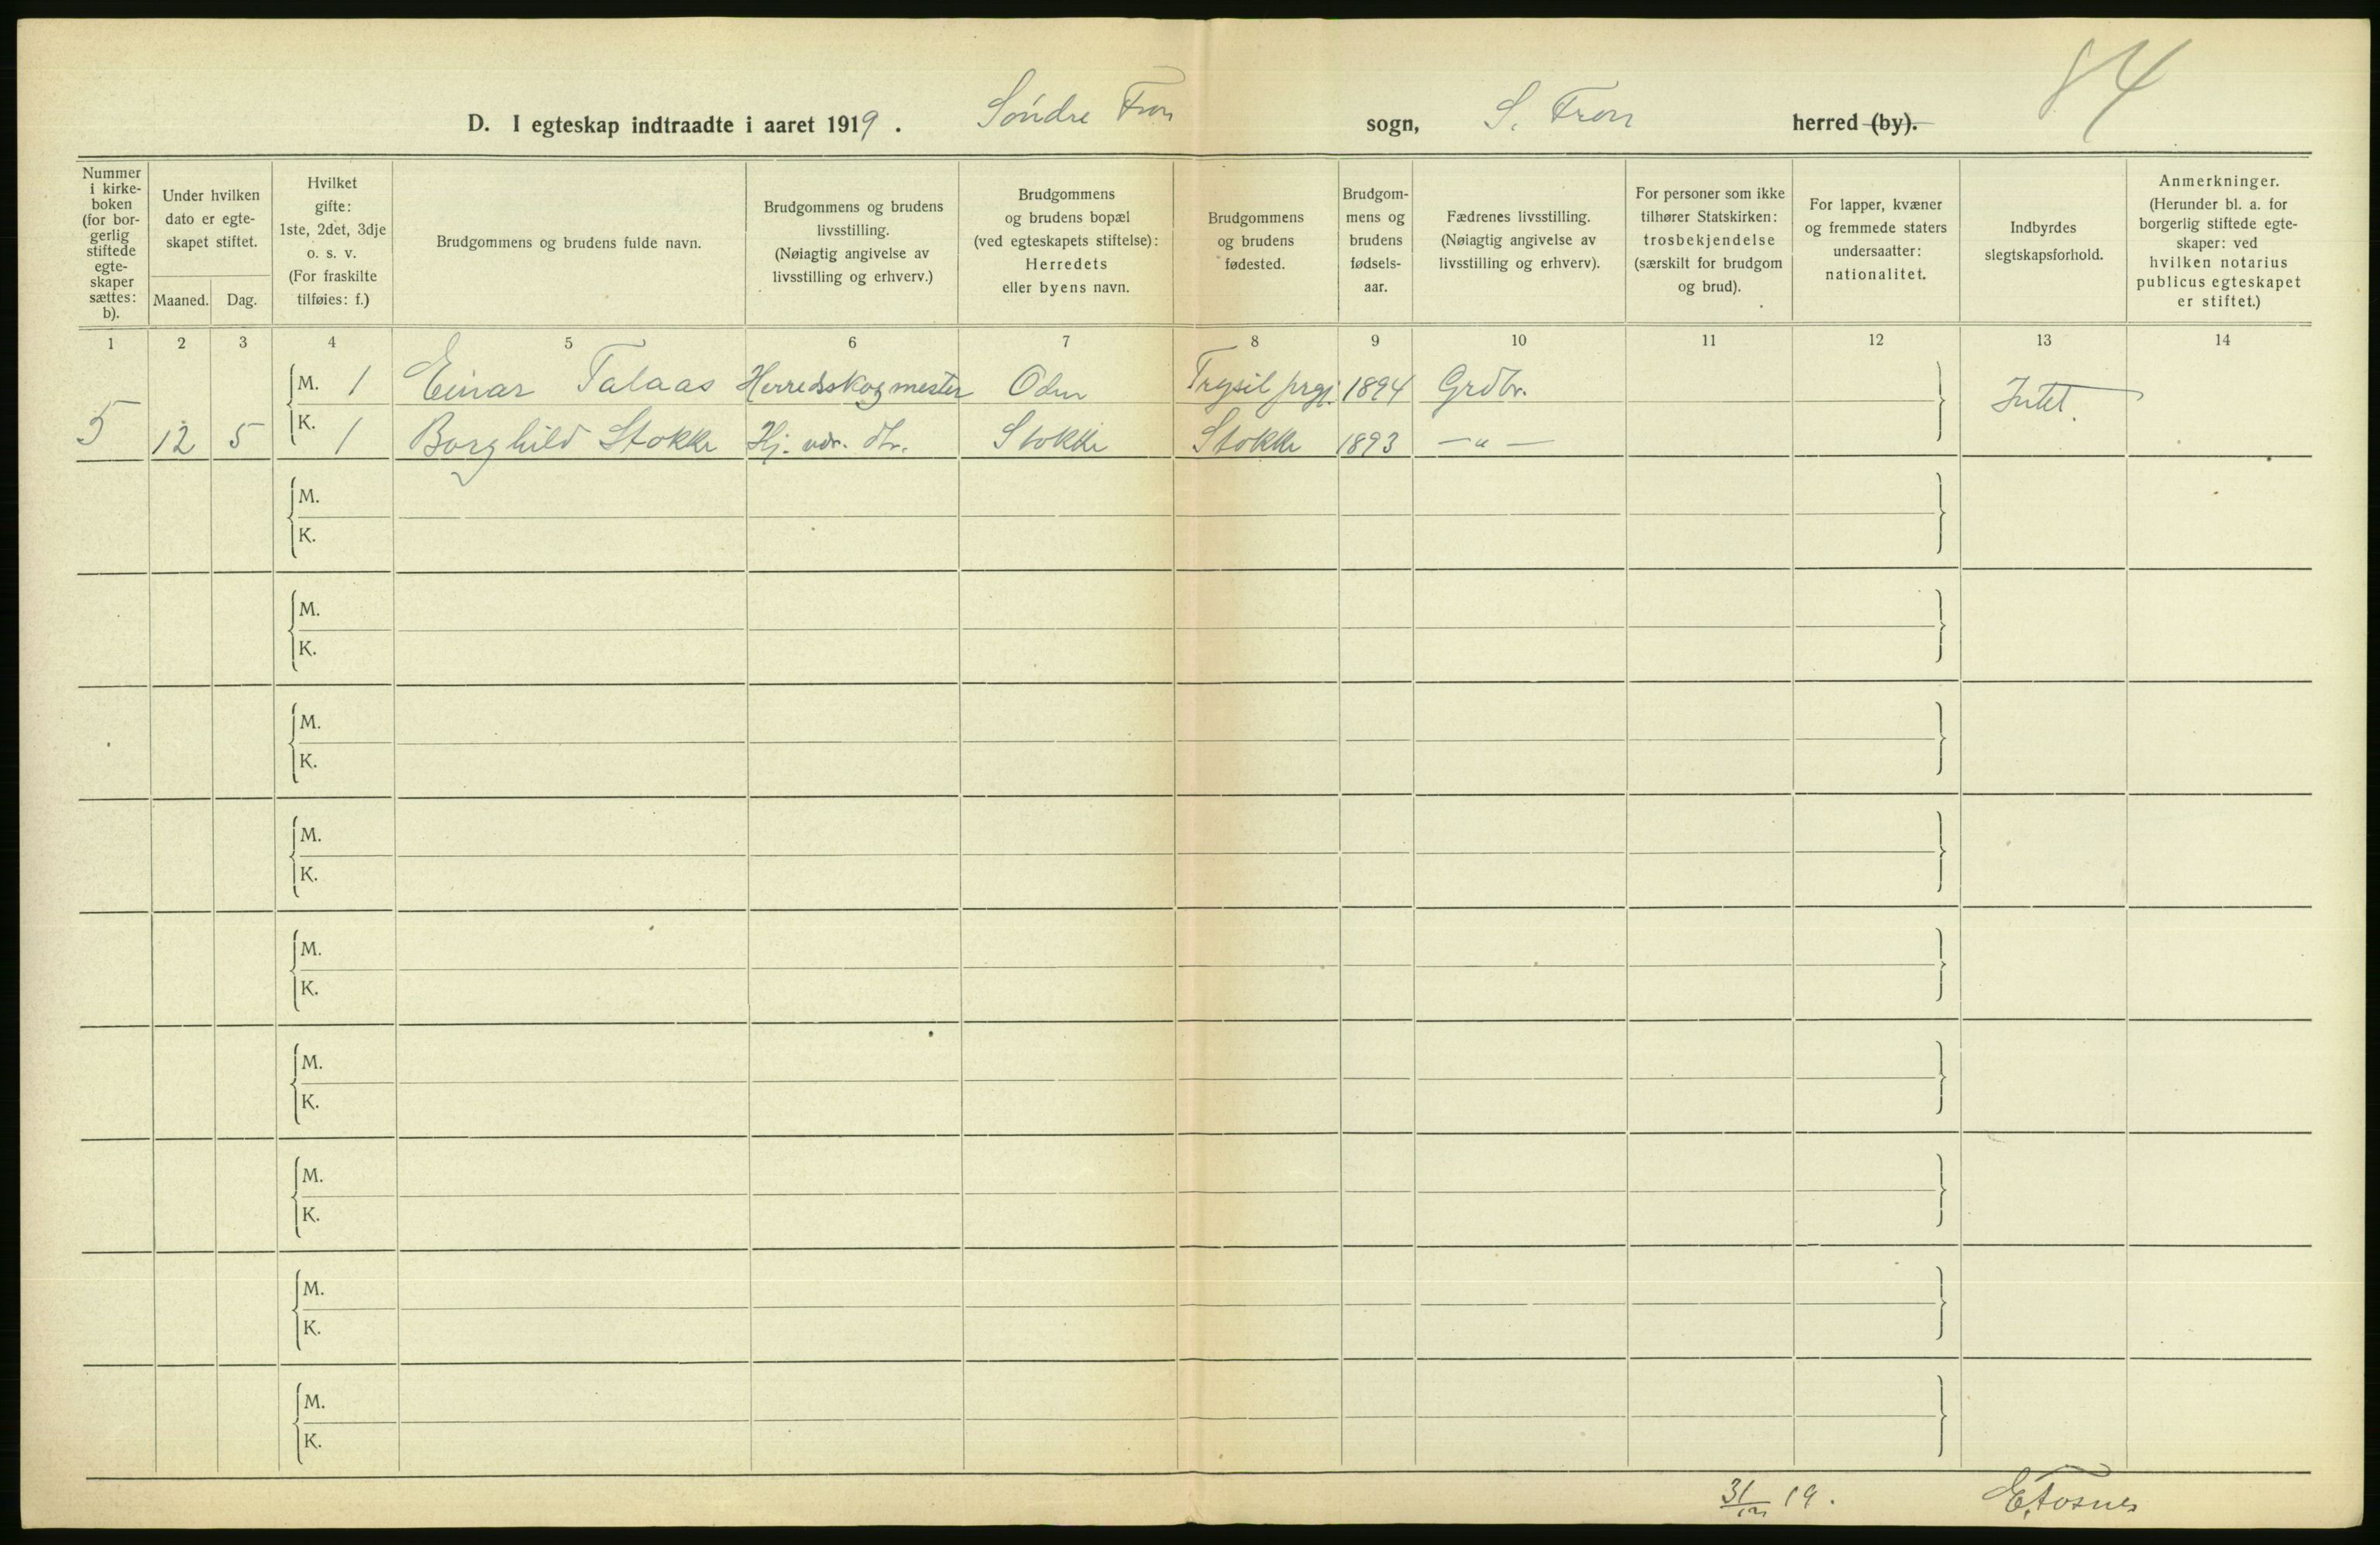 84
D. I egteskap indtraadte i aaret 1919. Söndre Fron sogn, S. Fron herred (by).
Nummer i kirke-boken (for bor-gerlig stiftede egte-skaper sættes: b).
Under hvilken dato er egte-skapet stiftet.
Maaned. Dag.
Hvilket gifte: 1ste, 2det, 3dje o. s. v. (For fraskilte tilføies: f.)
Brudgommens og brudens fulde navn.
Brudgommens og brudens livsstilling. (Nøiagtig angivelse av livsstilling og erhverv.)
Brudgommens og brudens bopæl (ved egteskapets stiftelse): Herredets eller byens navn.
Brudgommens og brudens fødested.
Brudgom-mens og brudens fødsels-aar.
Fædrenes livsstilling. (Nøiagtig angivelse av livsstilling og erhverv).
For personer som ikke tilhører Statskirken: trosbekjendelse (særskilt for brudgom og brud).
For lapper, kvæner og fremmede staters undersaatter: nationalitet.
Indbyrdes slegtskapsforhold.
Anmerkninger. (Herunder bl. a. for borgerlig stiftede egte-skaper: ved hvilken notarius publicus egteskapet er stiftet.)
1 2 3 4 5 6 7 8 9 10 11 12 13 14
M. 1 Einar Talaas Herredsskogmester Trysil prgj. 1894 Grdbr. Intet.
5 12 5 K. 1 Borghild Stokke Hj. vær. dtr. Stokke Stokke 1893 — " —
M.
K.
M.
K.
M.
K.
M.
K.
M.
K.
M.
K.
M.
K.
M.
K.
M.
K.
31/12 19. E. Fosnes